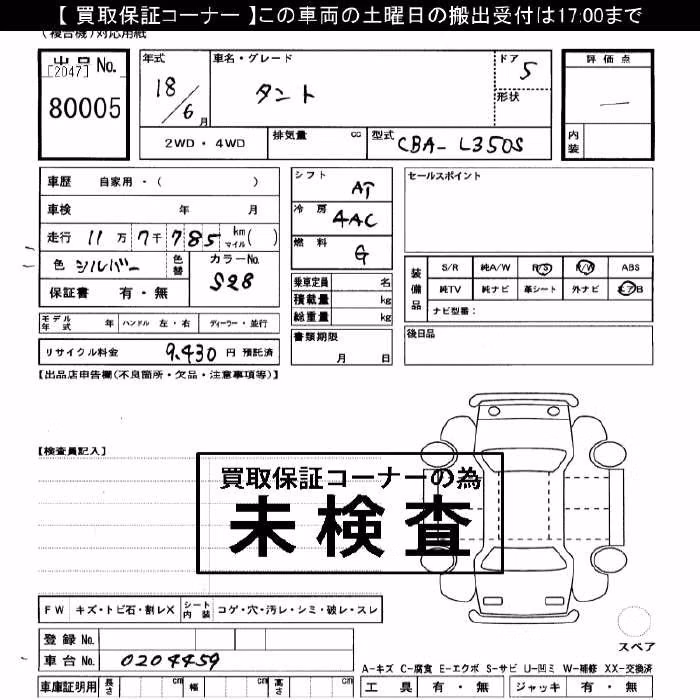 【 買取保証コーナー 】この車両の土曜日の搬出受付は17:00まで
(複合機)対応用紙
出品No.
[2047]
80005
年式
18/6月
車名・グレード
タント
ドア
5
形状
評価点
—
内装
2WD・4WD
排気量 cc
型式 CBA-L350S
車歴 自家用・( )
車検 年 月
走行 11万7千785 km マイル( )
色 シルバー 色替 カラーNo. S28
保証書 有・無
シフト AT
冷房 4AC
燃料 G
乗車定員 名
積載量 kg
総重量 kg
書類期限
月 日
セールスポイント
装備品
S/R 純A/W P/S P/W ABS
純TV 純ナビ 革シート 外ナビ エアB
ナビ型番:
後日品
モデル年式 年 ハンドル 左・右 ディーラー・並行
リサイクル料金 9,430 円 預託済
【出品店申告欄(不良箇所・欠品・注意事項等)】
【検査員記入】
買取保証コーナーの為
未検査
FW キズ・トビ石・割レX シート内装 コゲ・穴・汚レ・シミ・破レ・スレ
登録No.
車台No. 0204459
スペア
A-キズ C-腐食 E-エクボ S-サビ U-凹ミ W-補修 XX-交換済
車庫証明用 長さ cm 幅 cm 高さ cm
工具 有・無 ジャッキ 有・無